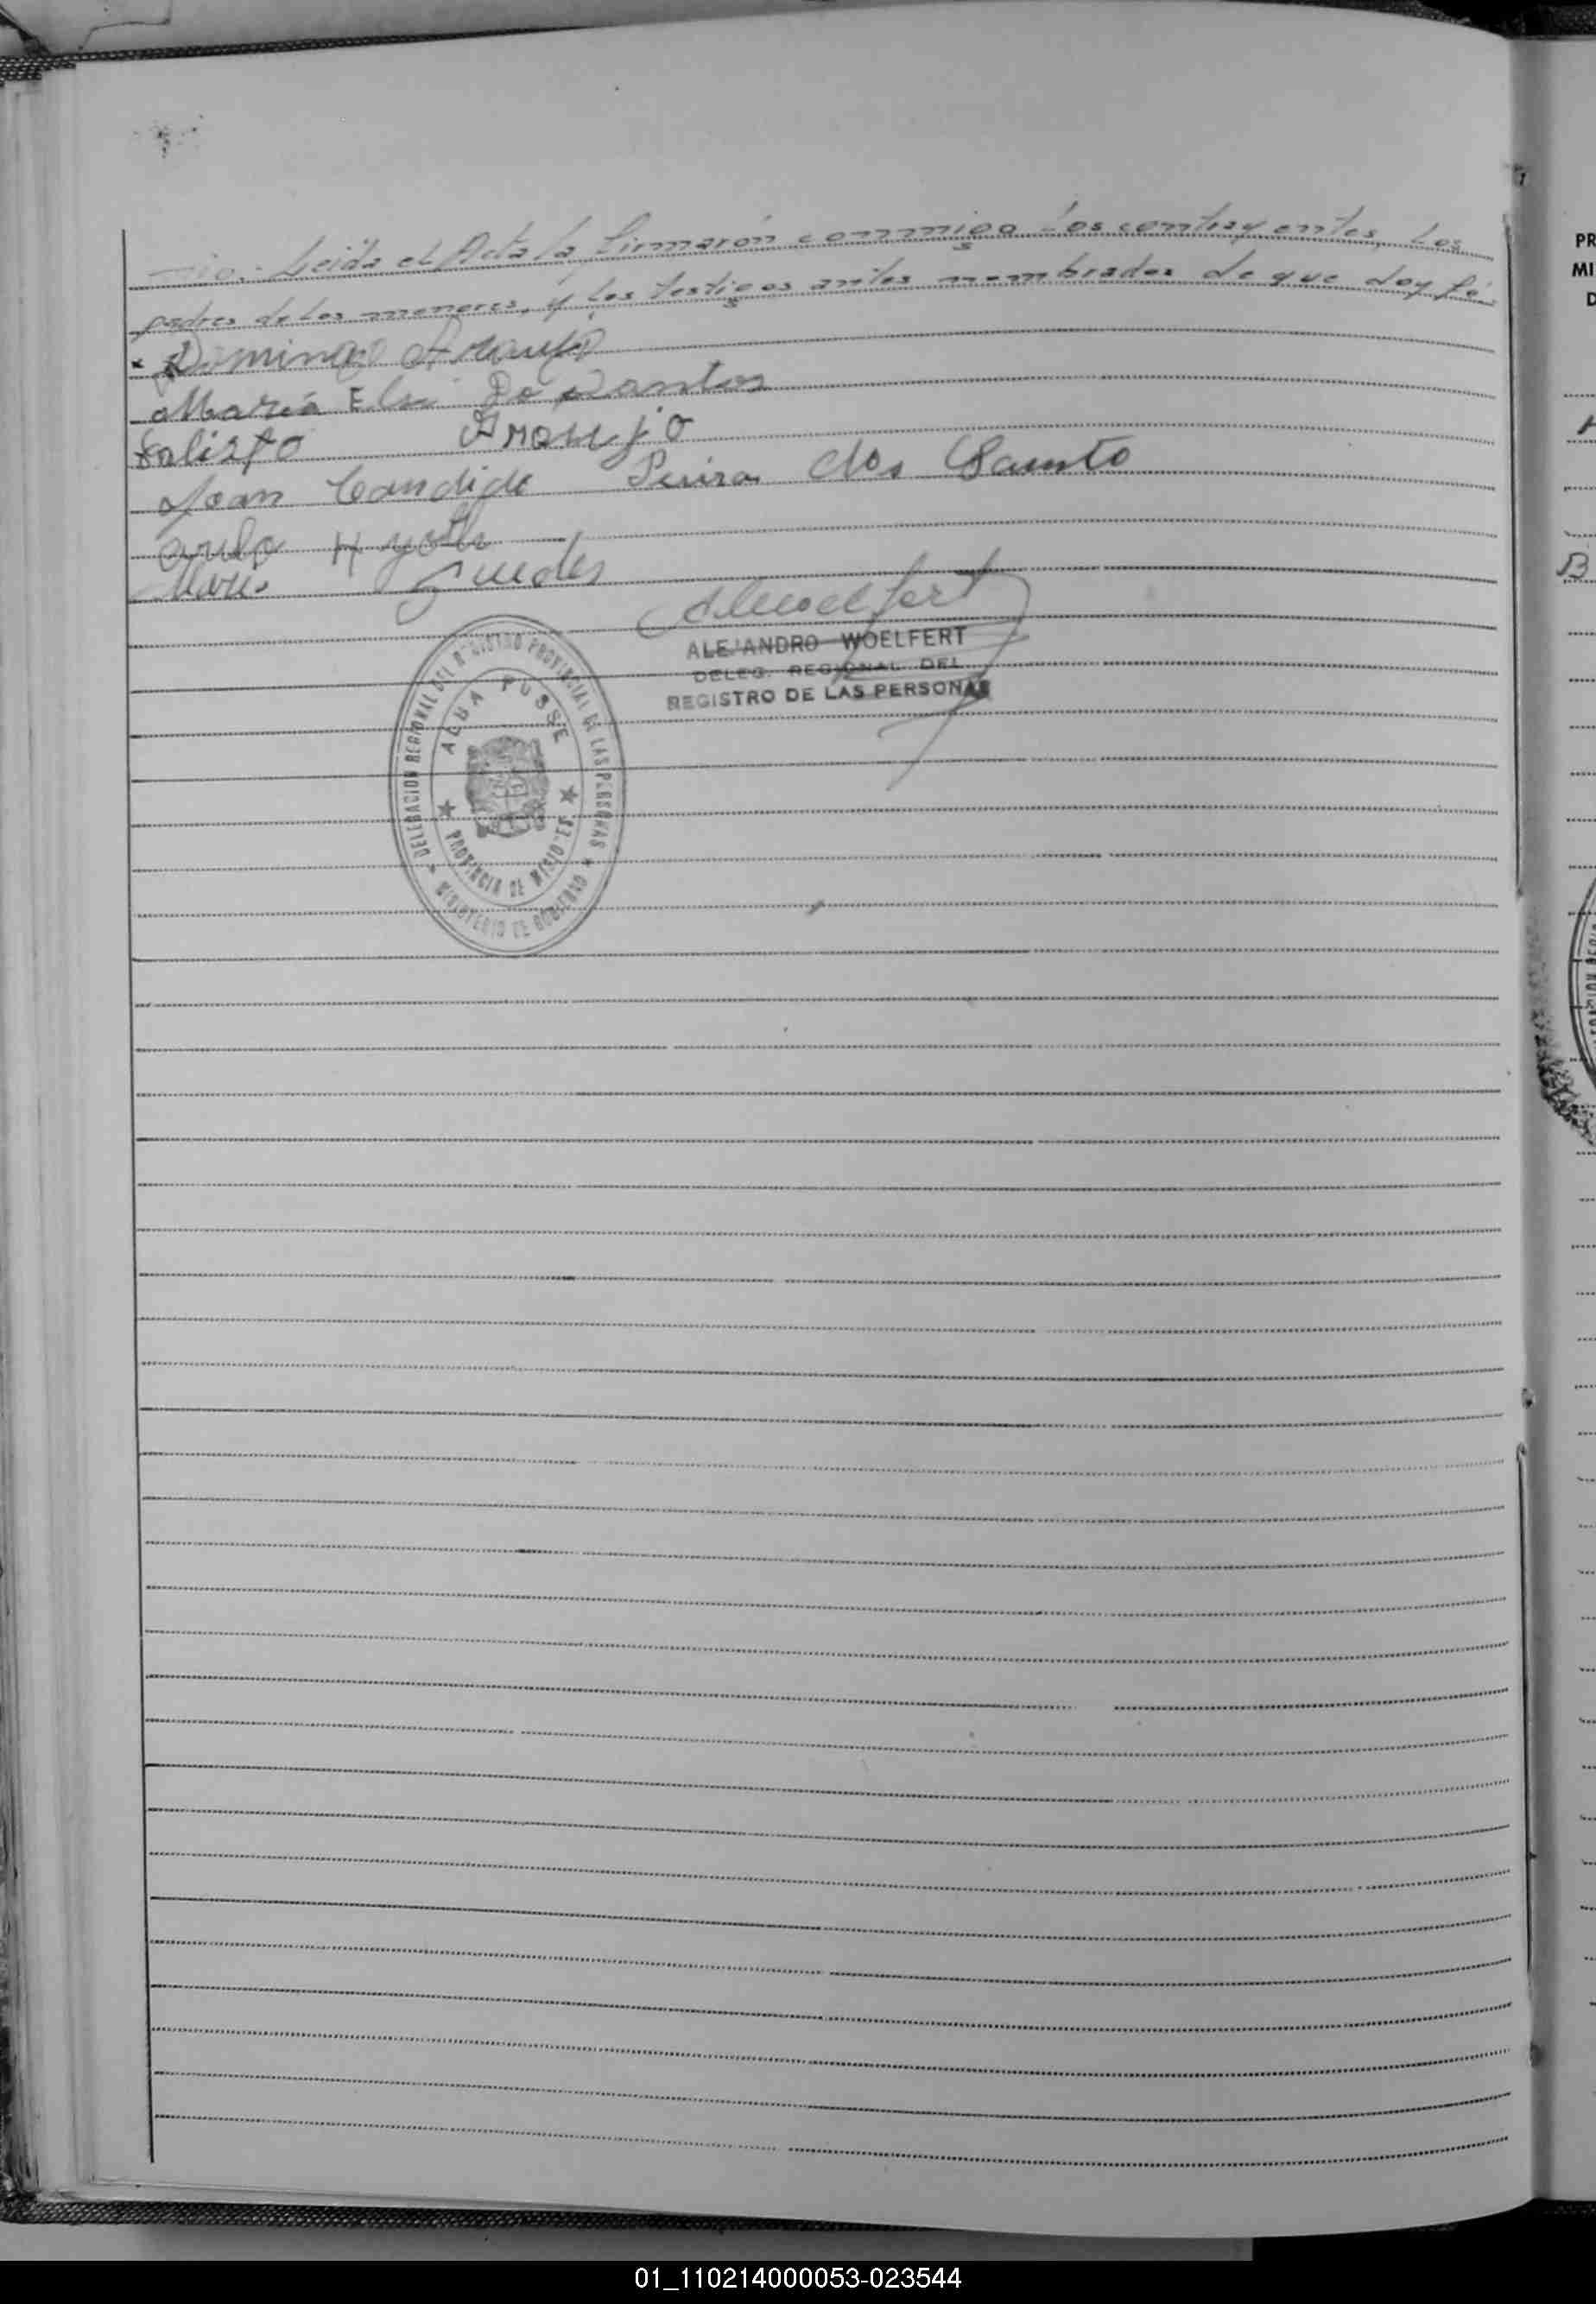 nio.- Leida el Acta la firmarón conmmigo los contrayentes, los
padres de los menores, y los testigos antes nombrados de que doy fé.-
Domingo Araujo
Maria Elsi Do Santos
Calisto Araujo
Joan Candido Pereira dos Santo
H
Mario Guedes
ALEJANDRO WOELFERT
DELEG. REGIONAL DEL
REGISTRO DE LAS PERSONAS
DELEGACION REGIONAL DEL REGISTRO PROVINCIAL DE LAS PERSONAS
MINISTERIO DE GOBIERNO
ALBA POSSE
PROVINCIA DE MISIONES
PR
MI
D
B
01_110214000053-023544